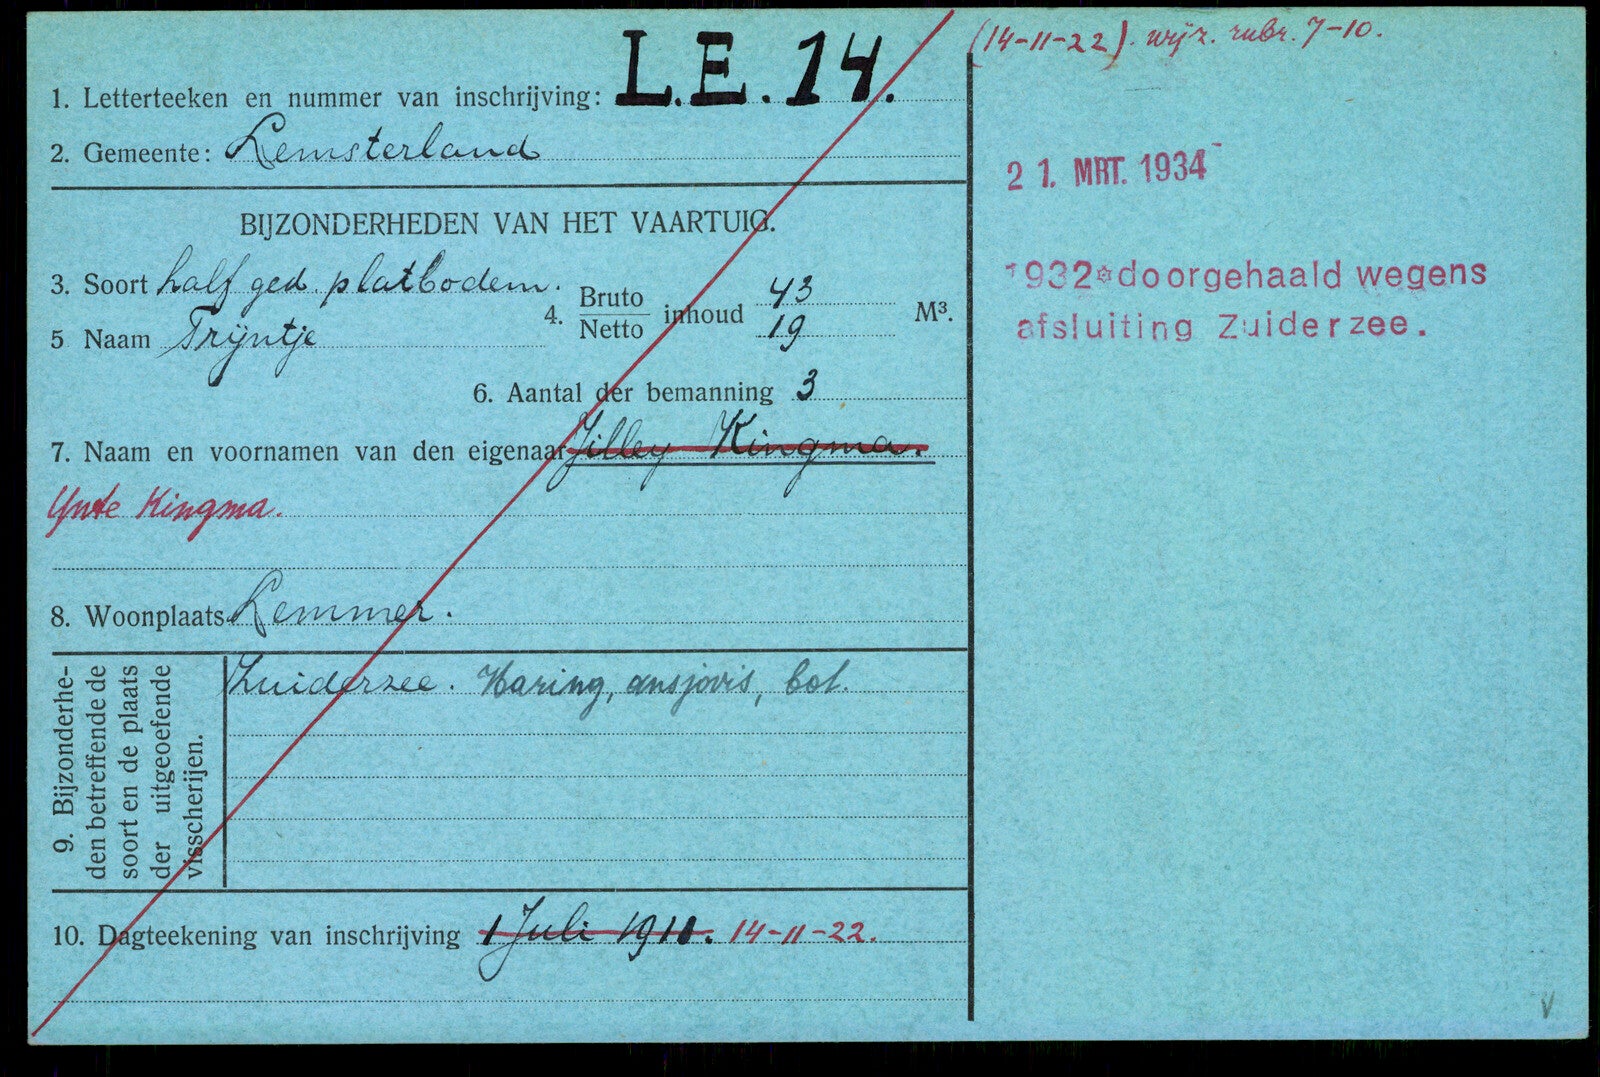 1. Letterteeken en nummer van inschrijving: L.E. 14.
2. Gemeente: Lemsterland
BIJZONDERHEDEN VAN HET VAARTUIG.
3. Soort half ged platbodem.
4. Bruto Netto inhoud 43 19 M³.
5 Naam Trijntje
6. Aantal der bemanning 3
7. Naam en voornamen van den eigenaar Jilley Kingma.
Ynte Kingma.
8. Woonplaats Lemmer.
9. Bijzonderhe-
den betreffende de
soort en de plaats
der uitgeoefende
visscherijen.
Zuiderzee. Haring, ansjovis, bot.
10. Dagteekening van inschrijving 1 Juli 1911. 14-11-22.
(14-11-22). wijz. rubr. 7-10.
21. MRT. 1934
1932 doorgehaald wegens
afsluiting Zuiderzee.
V